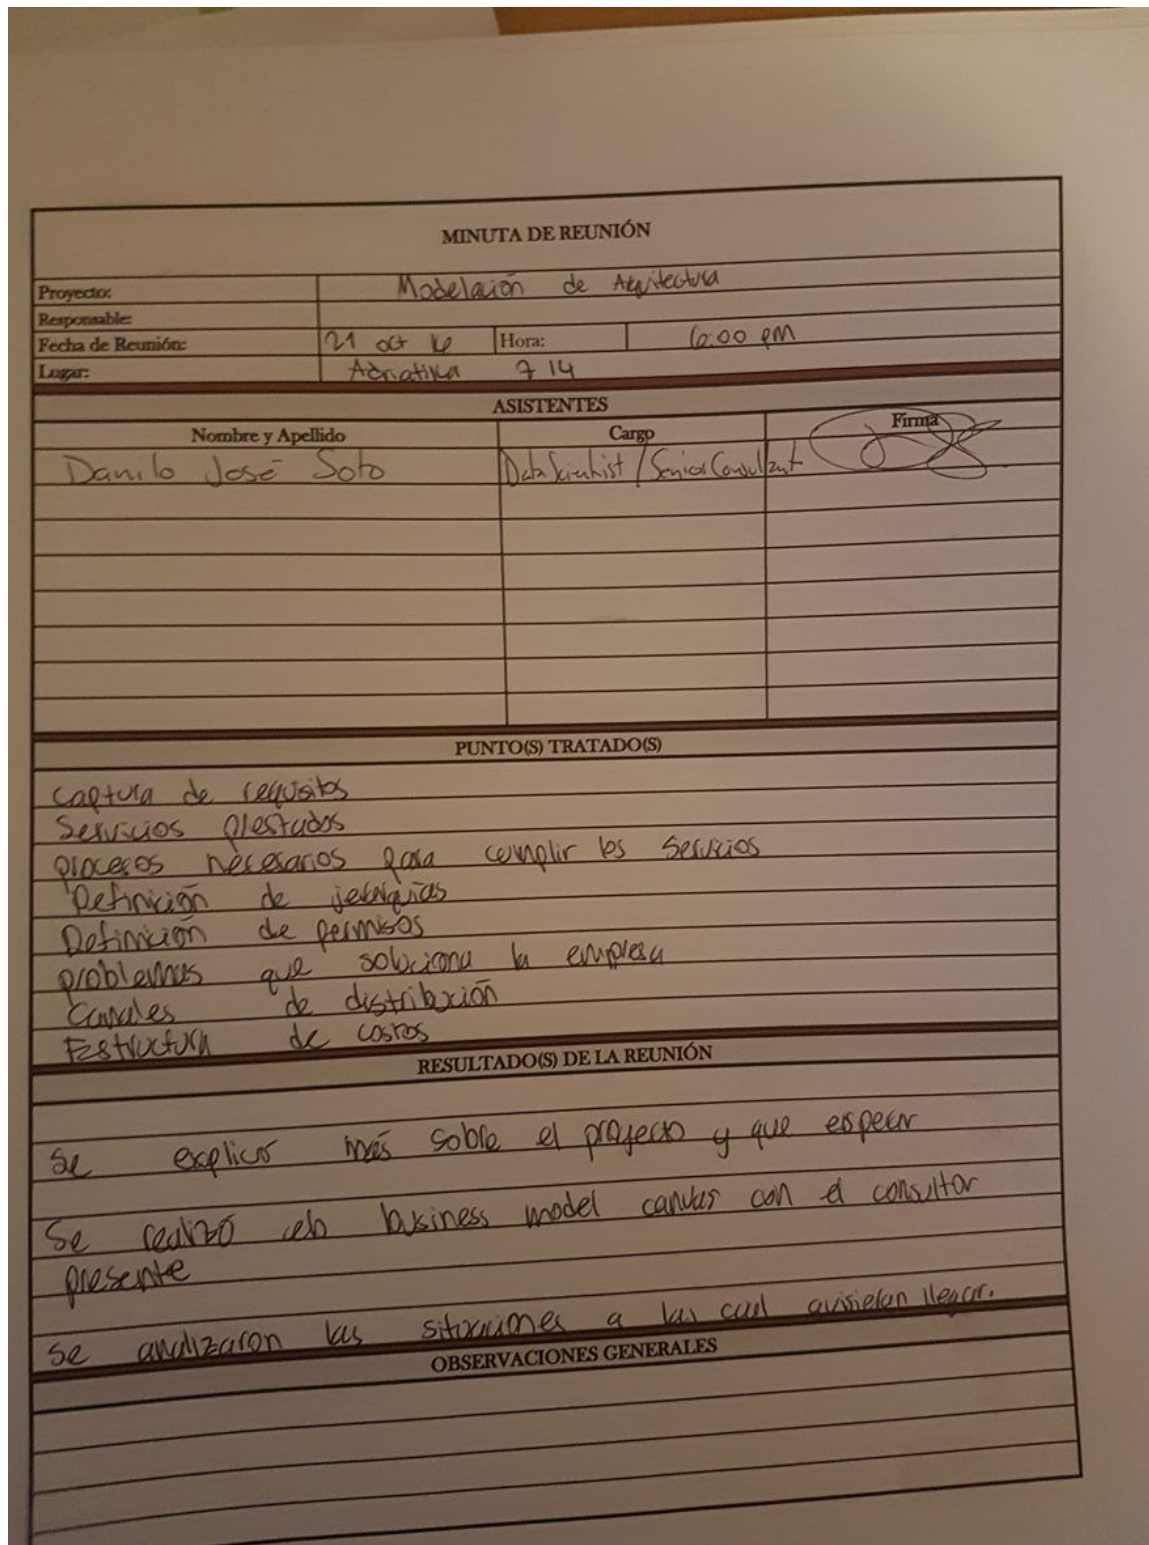 MINUTA DE REUNIÓN
Proyecto: Modelación de Arquitectura
Responsable:
Fecha de Reunión: 21 oct 16 Hora: 6:00 PM
Lugar: 714
ASISTENTES
Nombre y Apellido Cargo Firma
Danilo José Soto Data Scientist / Senior Consultant
PUNTO(S) TRATADO(S)
captura de requisitos
Servicios prestados
procesos necesarios para cumplir los servicios
Definición de jerarquías
Definición de permisos
problemas que soluciona la empresa
Canales de distribución
Estructura de costos
RESULTADO(S) DE LA REUNIÓN
Se explicó más sobre el proyecto y que esperar
Se realizó business model canvas con el consultor
presente
Se analizaron las situaciones a las cual quisieran llegar.
OBSERVACIONES GENERALES